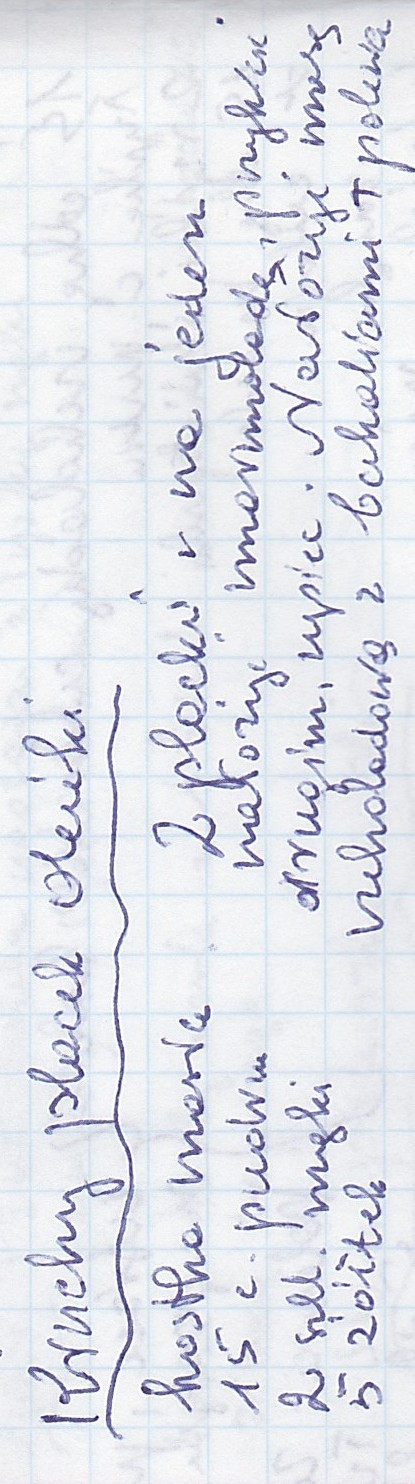 Kruchy placek Oleńki
kostka masła
15 c. pudru
2 szkl. mąki
5 żółtek
2 placki na jeden
nałożyć marmoladę, przykryć
drugim, upiec. Nałożyć masę
czekoladową z bakaliami + polewa